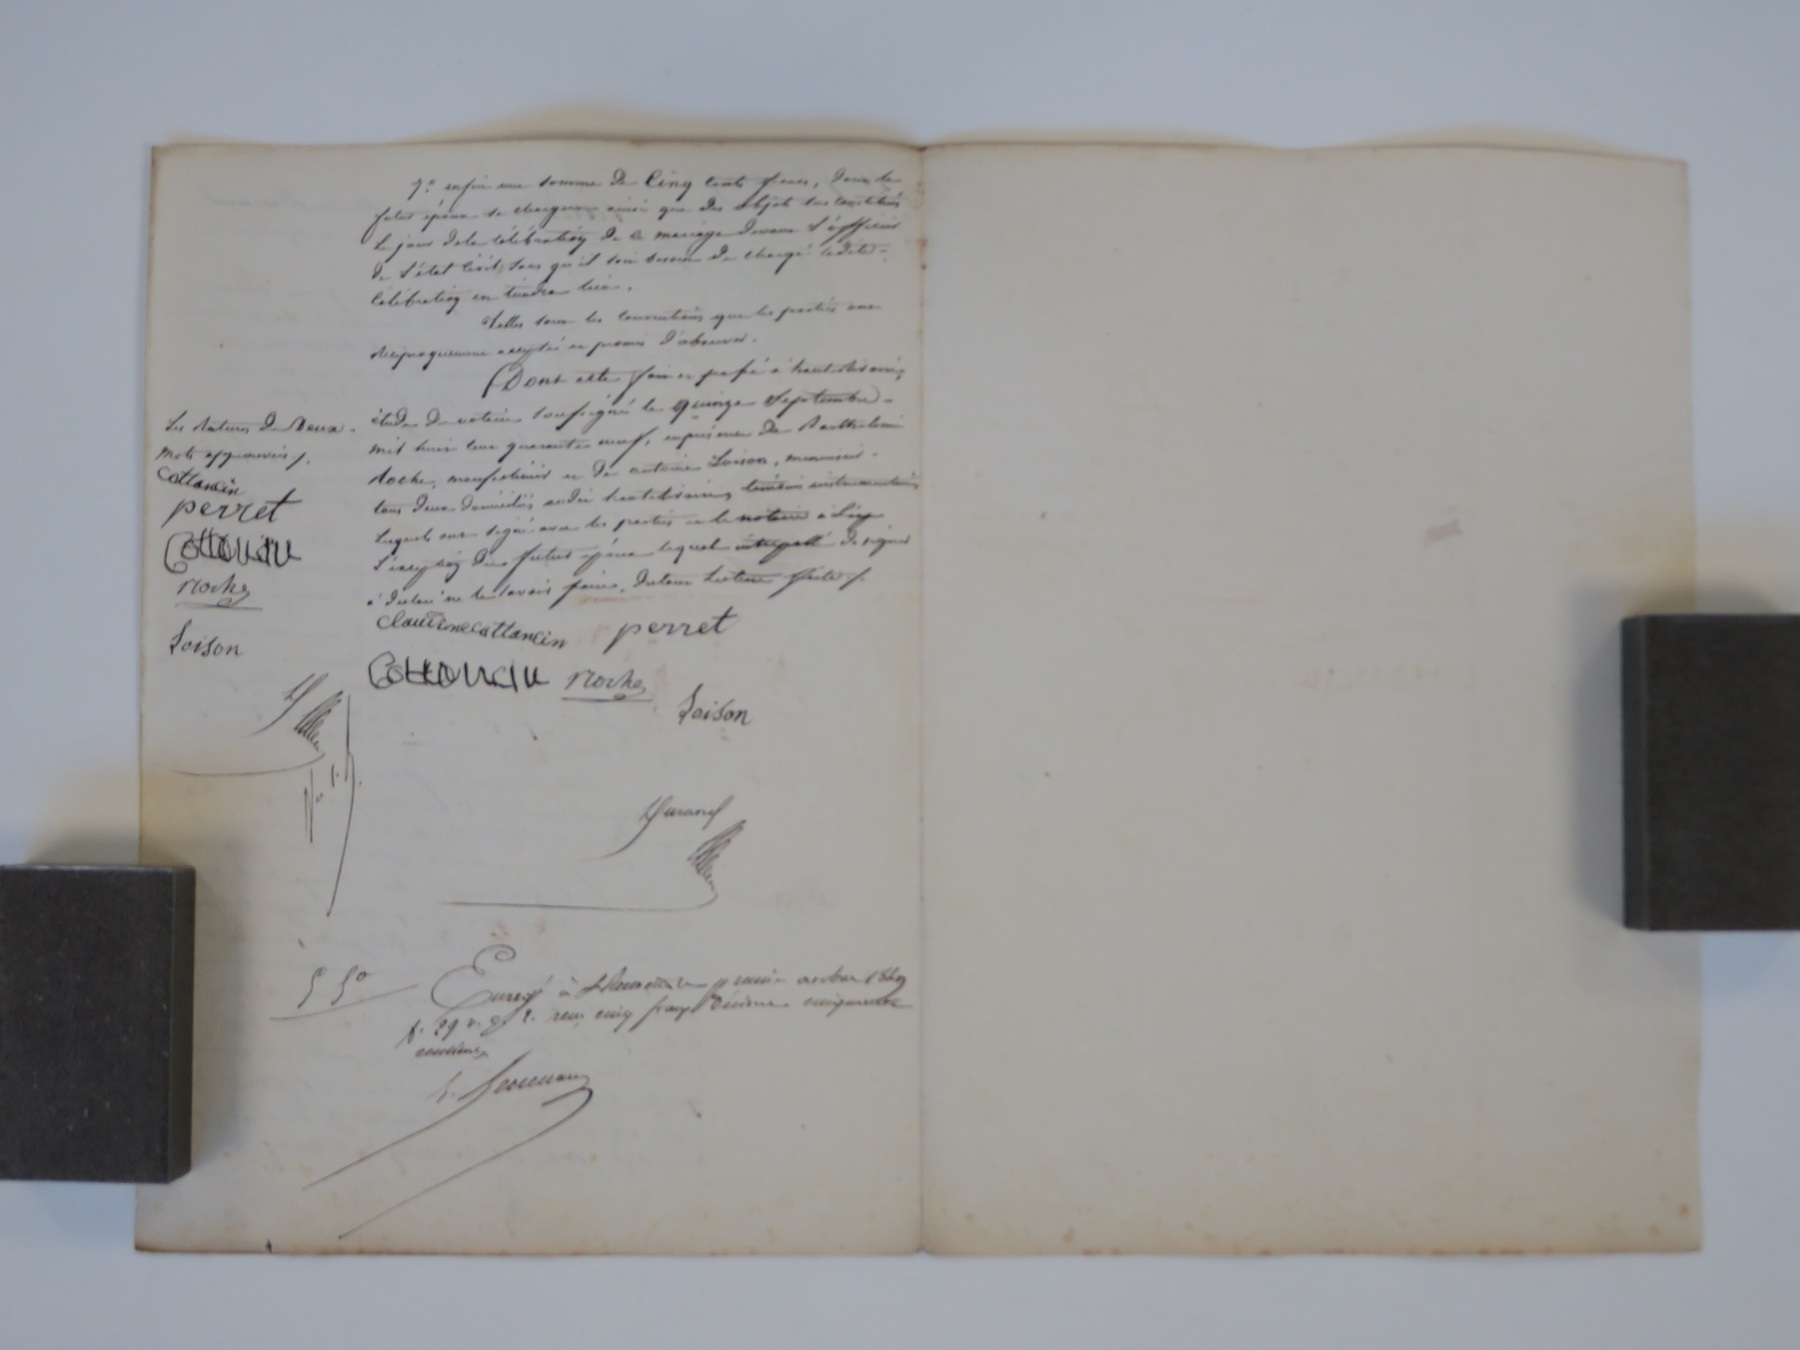 7.° enfin une somme de Cinq cents francs, dont le
futur époux se chargera ainsi que des objets sus constitués
le jour de la célébration de ce mariage devant l'officier
de l'état civil, sans qu'il soit besoin de charge ladite
célébration en tiendra lieu.
Telles sont les conventions que les parties ont
réciproquement accepté et promis d'observer.
Dont acte fait et passé à hauterivoire,
étude du notaire soussigné le quinze Septembre
mil huit cent quarante neuf, en présence de Barthelemi
Roche, et de antoine Loison, menuisier
tous deux domiciliés audit hauterivoire, témoins instrumentaires
lesquels ont signé avec les parties et le notaire à
l'exception du futur époux lequel interpellé de signer
à déclaré ne le savoir faire, de tout lecture faite /.
Les ratures de deux
mots approuvées /.
cottancin
perret
Cottancin
Roche
Loison
claudine cottancin perret
Cottancin Roche
Loison
Durand
5 50
Enregé à le premier octobre 1849
f. 29 v. c. 2. reçu cinq francs décime cinquante
centimes